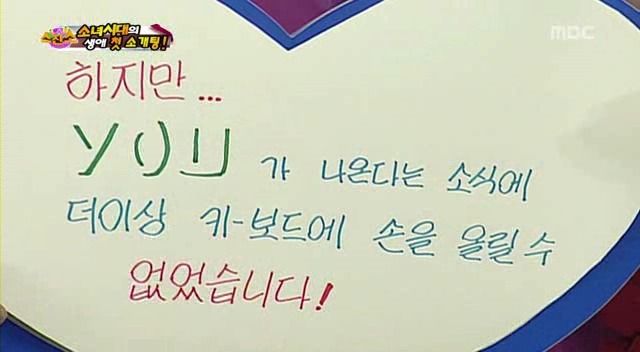 소녀시대의
생애 첫 소개팅!
MBC
하지만...
YOU 가 나온다는 소식에
더이상 키-보드에 손을 올릴 수
없었습니다!